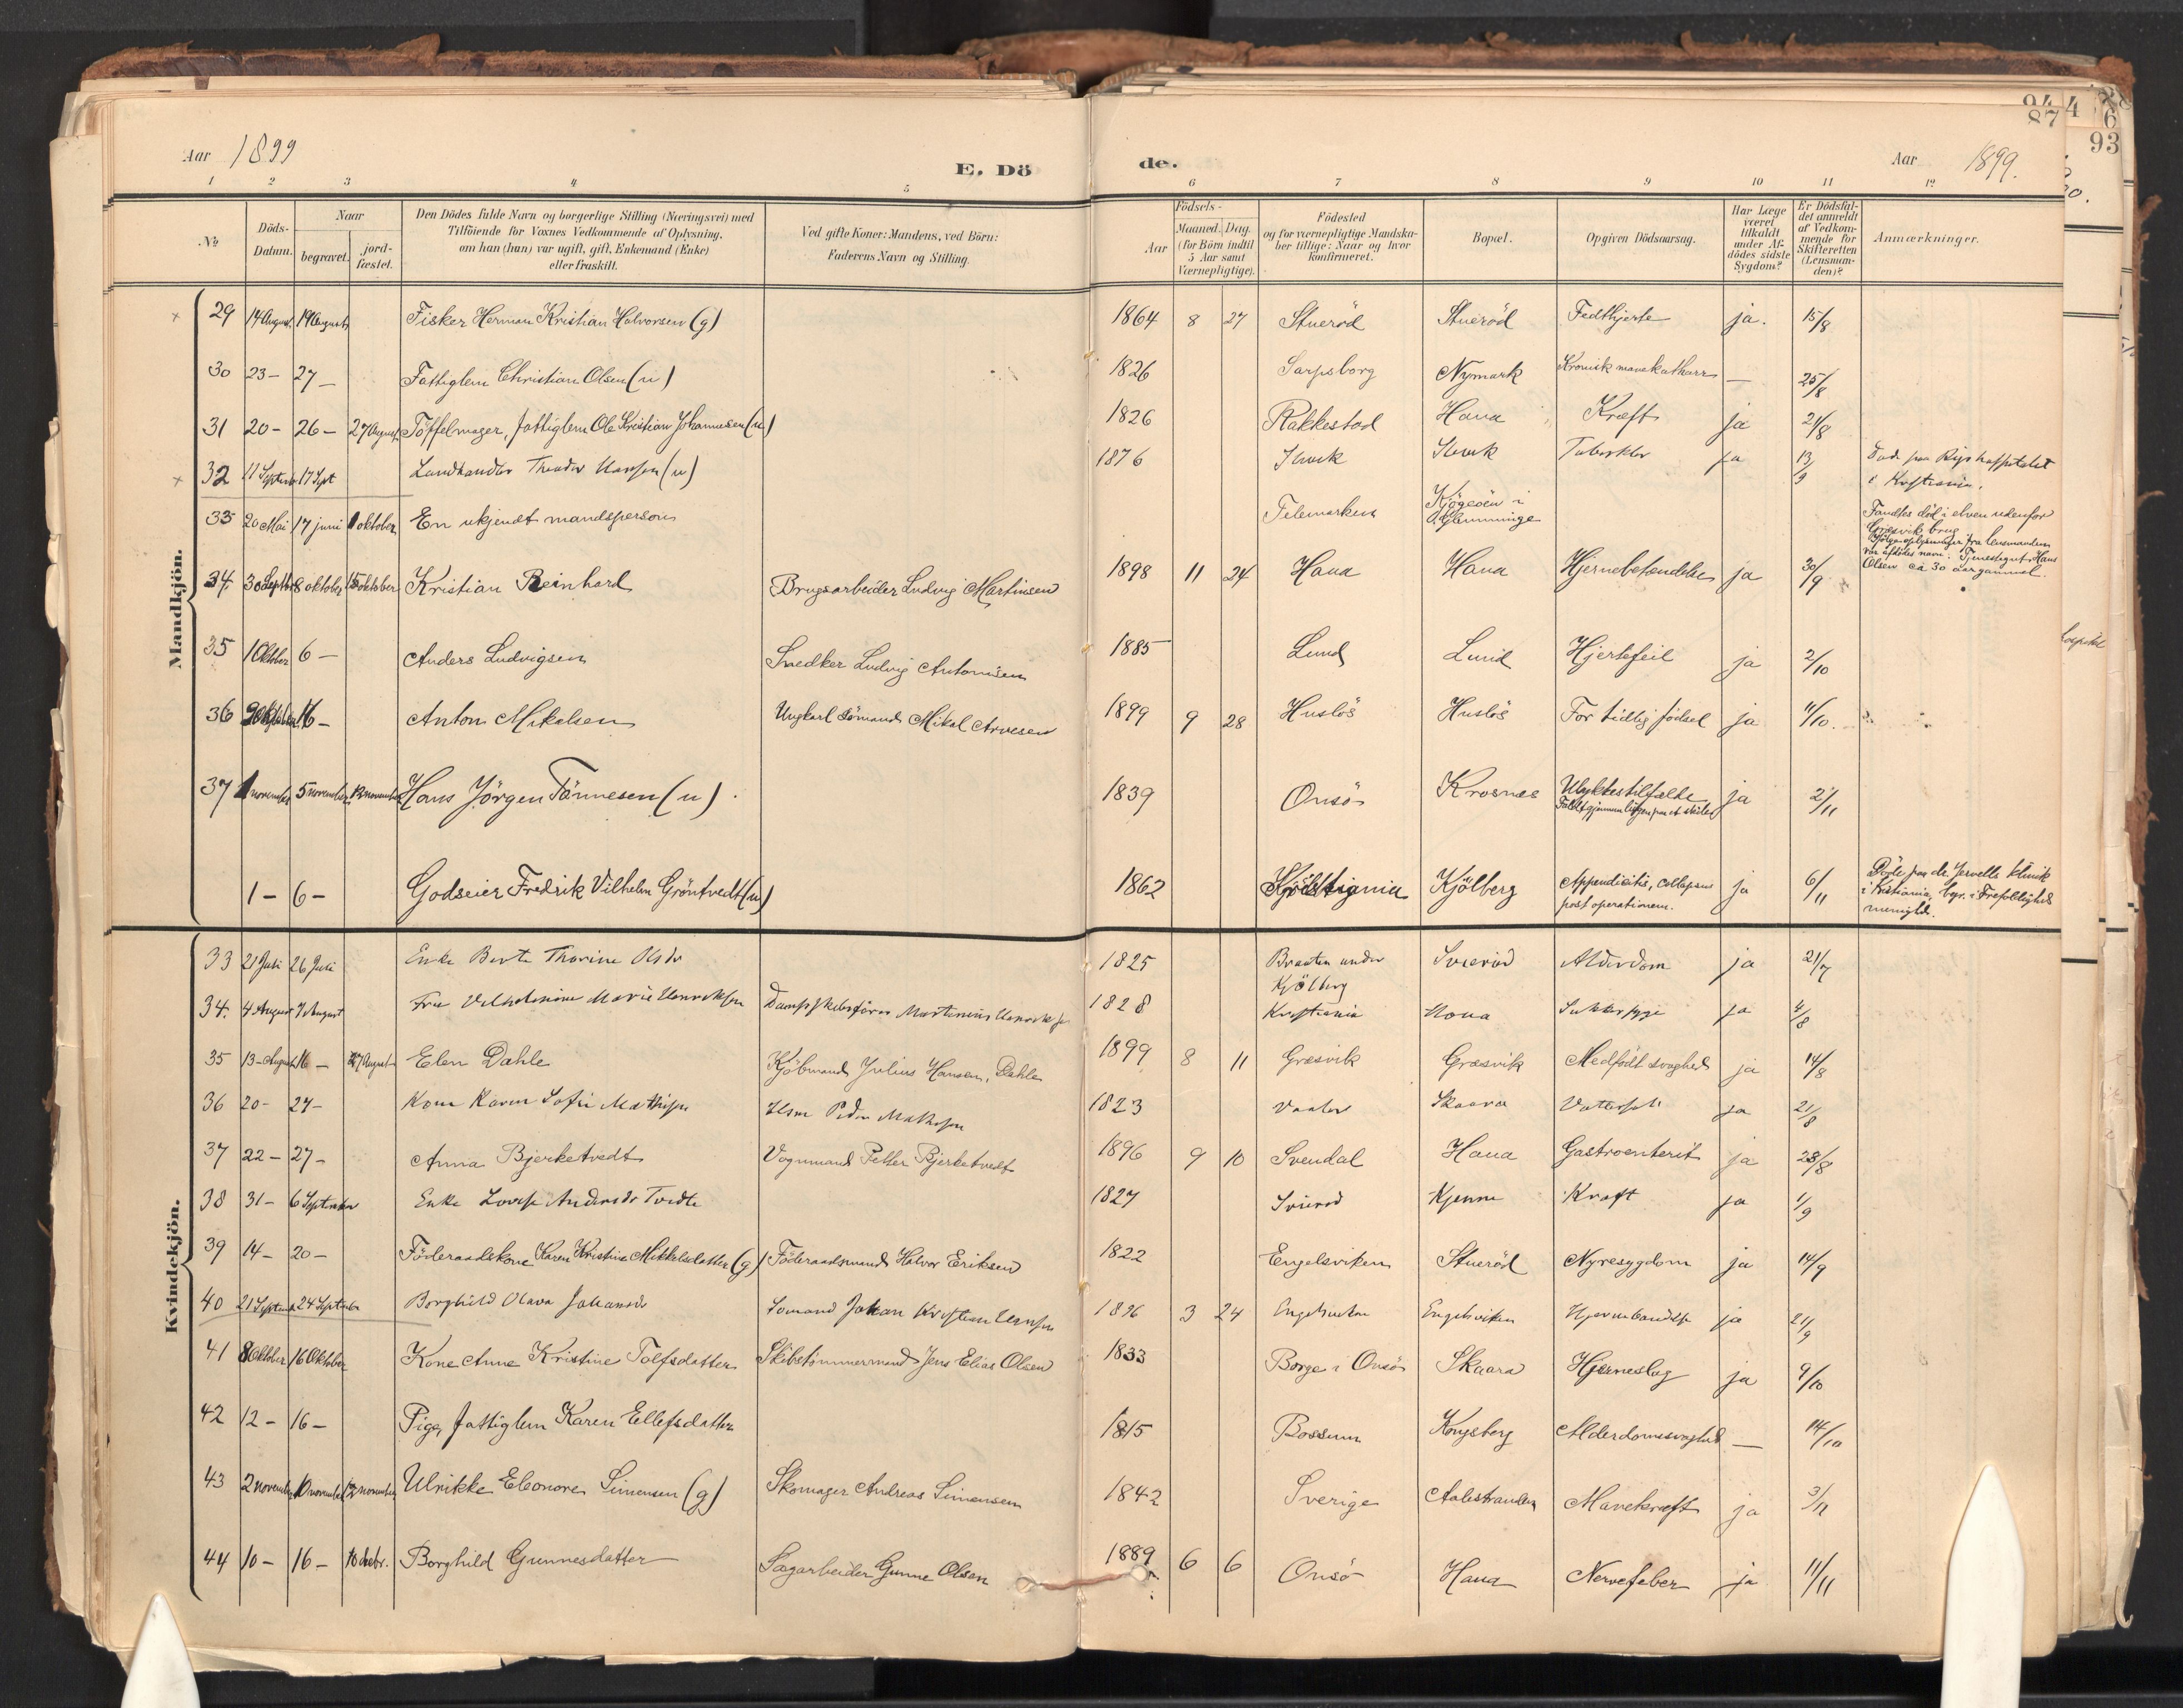 Aar 1899
E. Döde.
Aar 1899.
94 4 88
87 6
93
1 2 3 4 5 6 7 8 9 10 11 12
№
Döds-Datum.
Naar
begravet.
jord-fæstet.
Den Dödes fulde Navn og borgerlige Stilling (Næringsvei) med
Tilföiende for Voxnes Vedkommende af Oplysning,
om han (hun) var ugift, gift, Enkemand (Enke)
eller fraskilt.
Ved gifte Koner: Mandens, ved Börn:
Faderens Navn og Stilling.
Födsels-
Aar
Maaned. Dag.
(for Börn indtil
5 Aar samt
Værnepligtige).
Födested
og for værnepligtige Mandska-
ber tillige: Naar og hvor
konfirmeret.
Bopæl.
Opgiven Dödsaarsag.
Har Læge
været
tilkaldt
under Af-
dödes sidste
Sygdom?
Er Dödsfal-
det anmeldt
af Vedkom-
mende for
Skifteretten
(Lensman-
den)?
Anmærkninger.
Mandkjön.
29 14 August. 19 August Fisker Herman Kristian Halvorsen (g) 1864 8 27 Stueröd Stueröd Fedthjerte ja. 15/8
30 23 – 27 – Fattiglem Christian Olsen (u) 1826 Sarpsborg Nymark Kronisk mavekatharr — 25/8
31 20 – 26 – 27 August Töffelmager, fattiglem Ole Kristian Johannesen (u) 1826 Rakkestad Haua Kræft ja 21/8
32 11 Septemb 17 Sept Landhandler Theodor Hansen (u) 1876 Slevik Slevik Tuberkler ja 13/9 Döde paa Rigshospitalet
i Kristiania.
33 20 Mai 17 juni 1 oktober En ukjendt mandsperson Telemarken Kjögeöen i
Glemminge Fandtes död i elven udenfor
Græsvik brug
Ifölge oplysninger fra lensmanden
var afdödes navn: Tjenestegut Hans
Olsen ca 30 aar gammel.
34. 30 Septbr 8 oktober 15 oktober Kristian Reinhard Brugsarbeider Ludvig Martinsen 1898 11 24 Haua Haua Hjernebetændelse ja 30/9
35 1 Oktober 6 – Anders Ludvigsen Snedker Ludvig Antonisen 1885 Lund Lund Hjertefeil ja 2/10
36 9 Oktober 16 – Anton Mikelsen Ungkarl sömand Mikal Arvesen 1899 9 28 Huslös Huslös For tidlig födsel ja 11/10.
37 1 november 5 november 12 november Hans Jörgen Tönnesen (u) 1839 Onsö Krosnes Ulykkestilfælde
Faldt gjennem paa et skib ja 2/11
1 – 6 – Godseier Fredrik Vilhelm Gröntvedt (u) 1862 Kristiania Kjölberg Appendicitis, collapsus
post operationem. ja 6/11 Döde paa dr. Jervells klinik
i Kristiania, begr. i Trefoldigheds
menighd.
Kvindekjön.
33 21 Juli 26 Juli Enke Berte Thorine Olsdr 1825 Braaten under
Kjölberg Svieröd Alderdom ja 21/7
34. 4 August 7 August Frue Vilhelmine Marie Henriksen Dampskibsförer Martinius Henriksen 1828 Kristiania Houa Sukkersyge ja 4/8
35 13 – August 16 – 27 August Elen Dahle Kjöbmand Julius Hansen, Dahle 1899 8 11 Græsvik Græsvik Medfödt svaghed ja 14/8
36 20 – 27 – Kone Karen Sofie Mathisen Hsm Peder Mathisen 1823 Vaaler Skaara Vattersot ja 21/8
37 22 – 27 – Anna Bjerketvedt Vognmand Petter Bjerketvedt 1896 9 10 Svendal Haua Gastroenterit ja 28/8
38 31 – 6 September Enke Lovise Andersdr Tvedte 1827 Svieröd Kjenne Kræft ja 1/9
39 14 – 20 – Föderaadskone Karen Kristine Mikkelsdatter (g) Föderaadsmand Halvor Eriksen 1822 Engelsviken Stueröd Nyresygdom ja 14/9
40 21 Septem 24 September Borghild Olava Johansdr Sömand Johan Kristian Hansen 1896 3 24 Engelsviken Engelsviken ja 21/9
41 8 Oktober 16 Oktober Kone Anne Kristine Tolfsdatter Skibstömmermand Jens Elias Olsen 1833 Borge i Onsö Skaara Hjerneslag ja 9/10
42 12 – 16 – Pige, fattiglem Karen Ellefsdatter 1815 Bossum Kongsberg Alderdomssvaghed — 14/10
43 2 november 10 november 12 november Ulrikke Eleonore Simensen (g) Skomager Andreas Simensen 1842 Sverige Aalestranden Mavekræft ja 3/11
44 10 – 16 – 10 decbr. Borghild Gunnesdatter Sagarbeider Gunne Olsen 1889 6 6 Onsö Haua Nervefeber ja 11/11